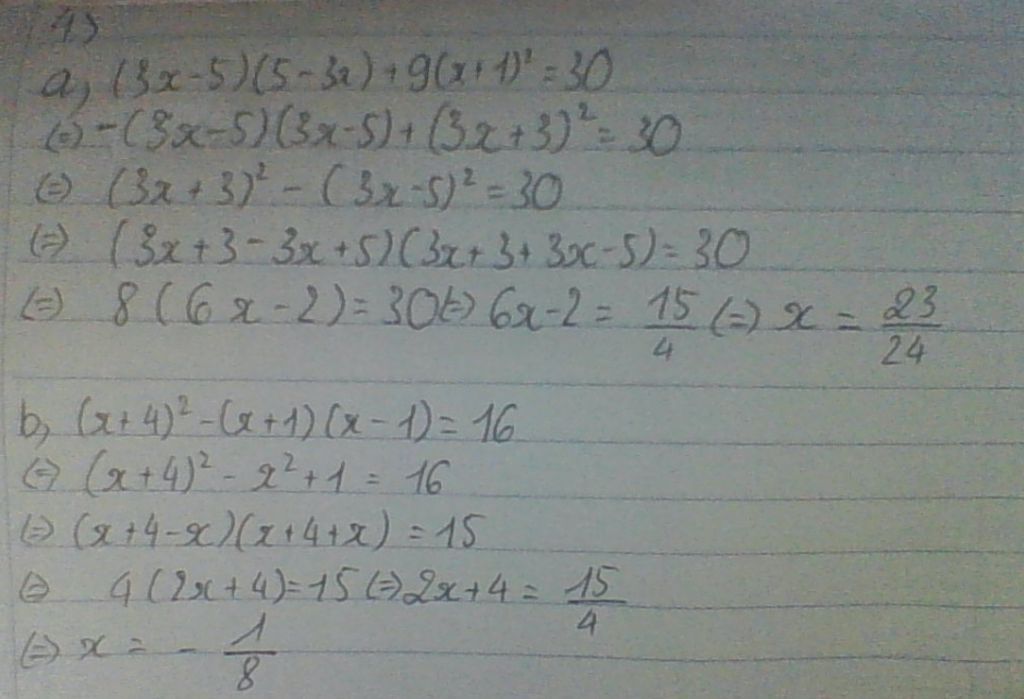 1)
a, (3x-5)(5-3x)+9(x+1)² = 30
(=) -(3x-5)(3x-5)+(3x+3)² = 30
(=) (3x+3)² - (3x-5)² = 30
(=) (3x+3-3x+5)(3x+3+3x-5) = 30
(=) 8(6x-2) = 30 (=) 6x-2 = 15/4 (=) x = 23/24
b, (x+4)² - (x+1)(x-1) = 16
(=) (x+4)² - x² + 1 = 16
(=) (x+4-x)(x+4+x) = 15
(=) 4(2x+4) = 15 (=) 2x+4 = 15/4
(=) x = - 1/8